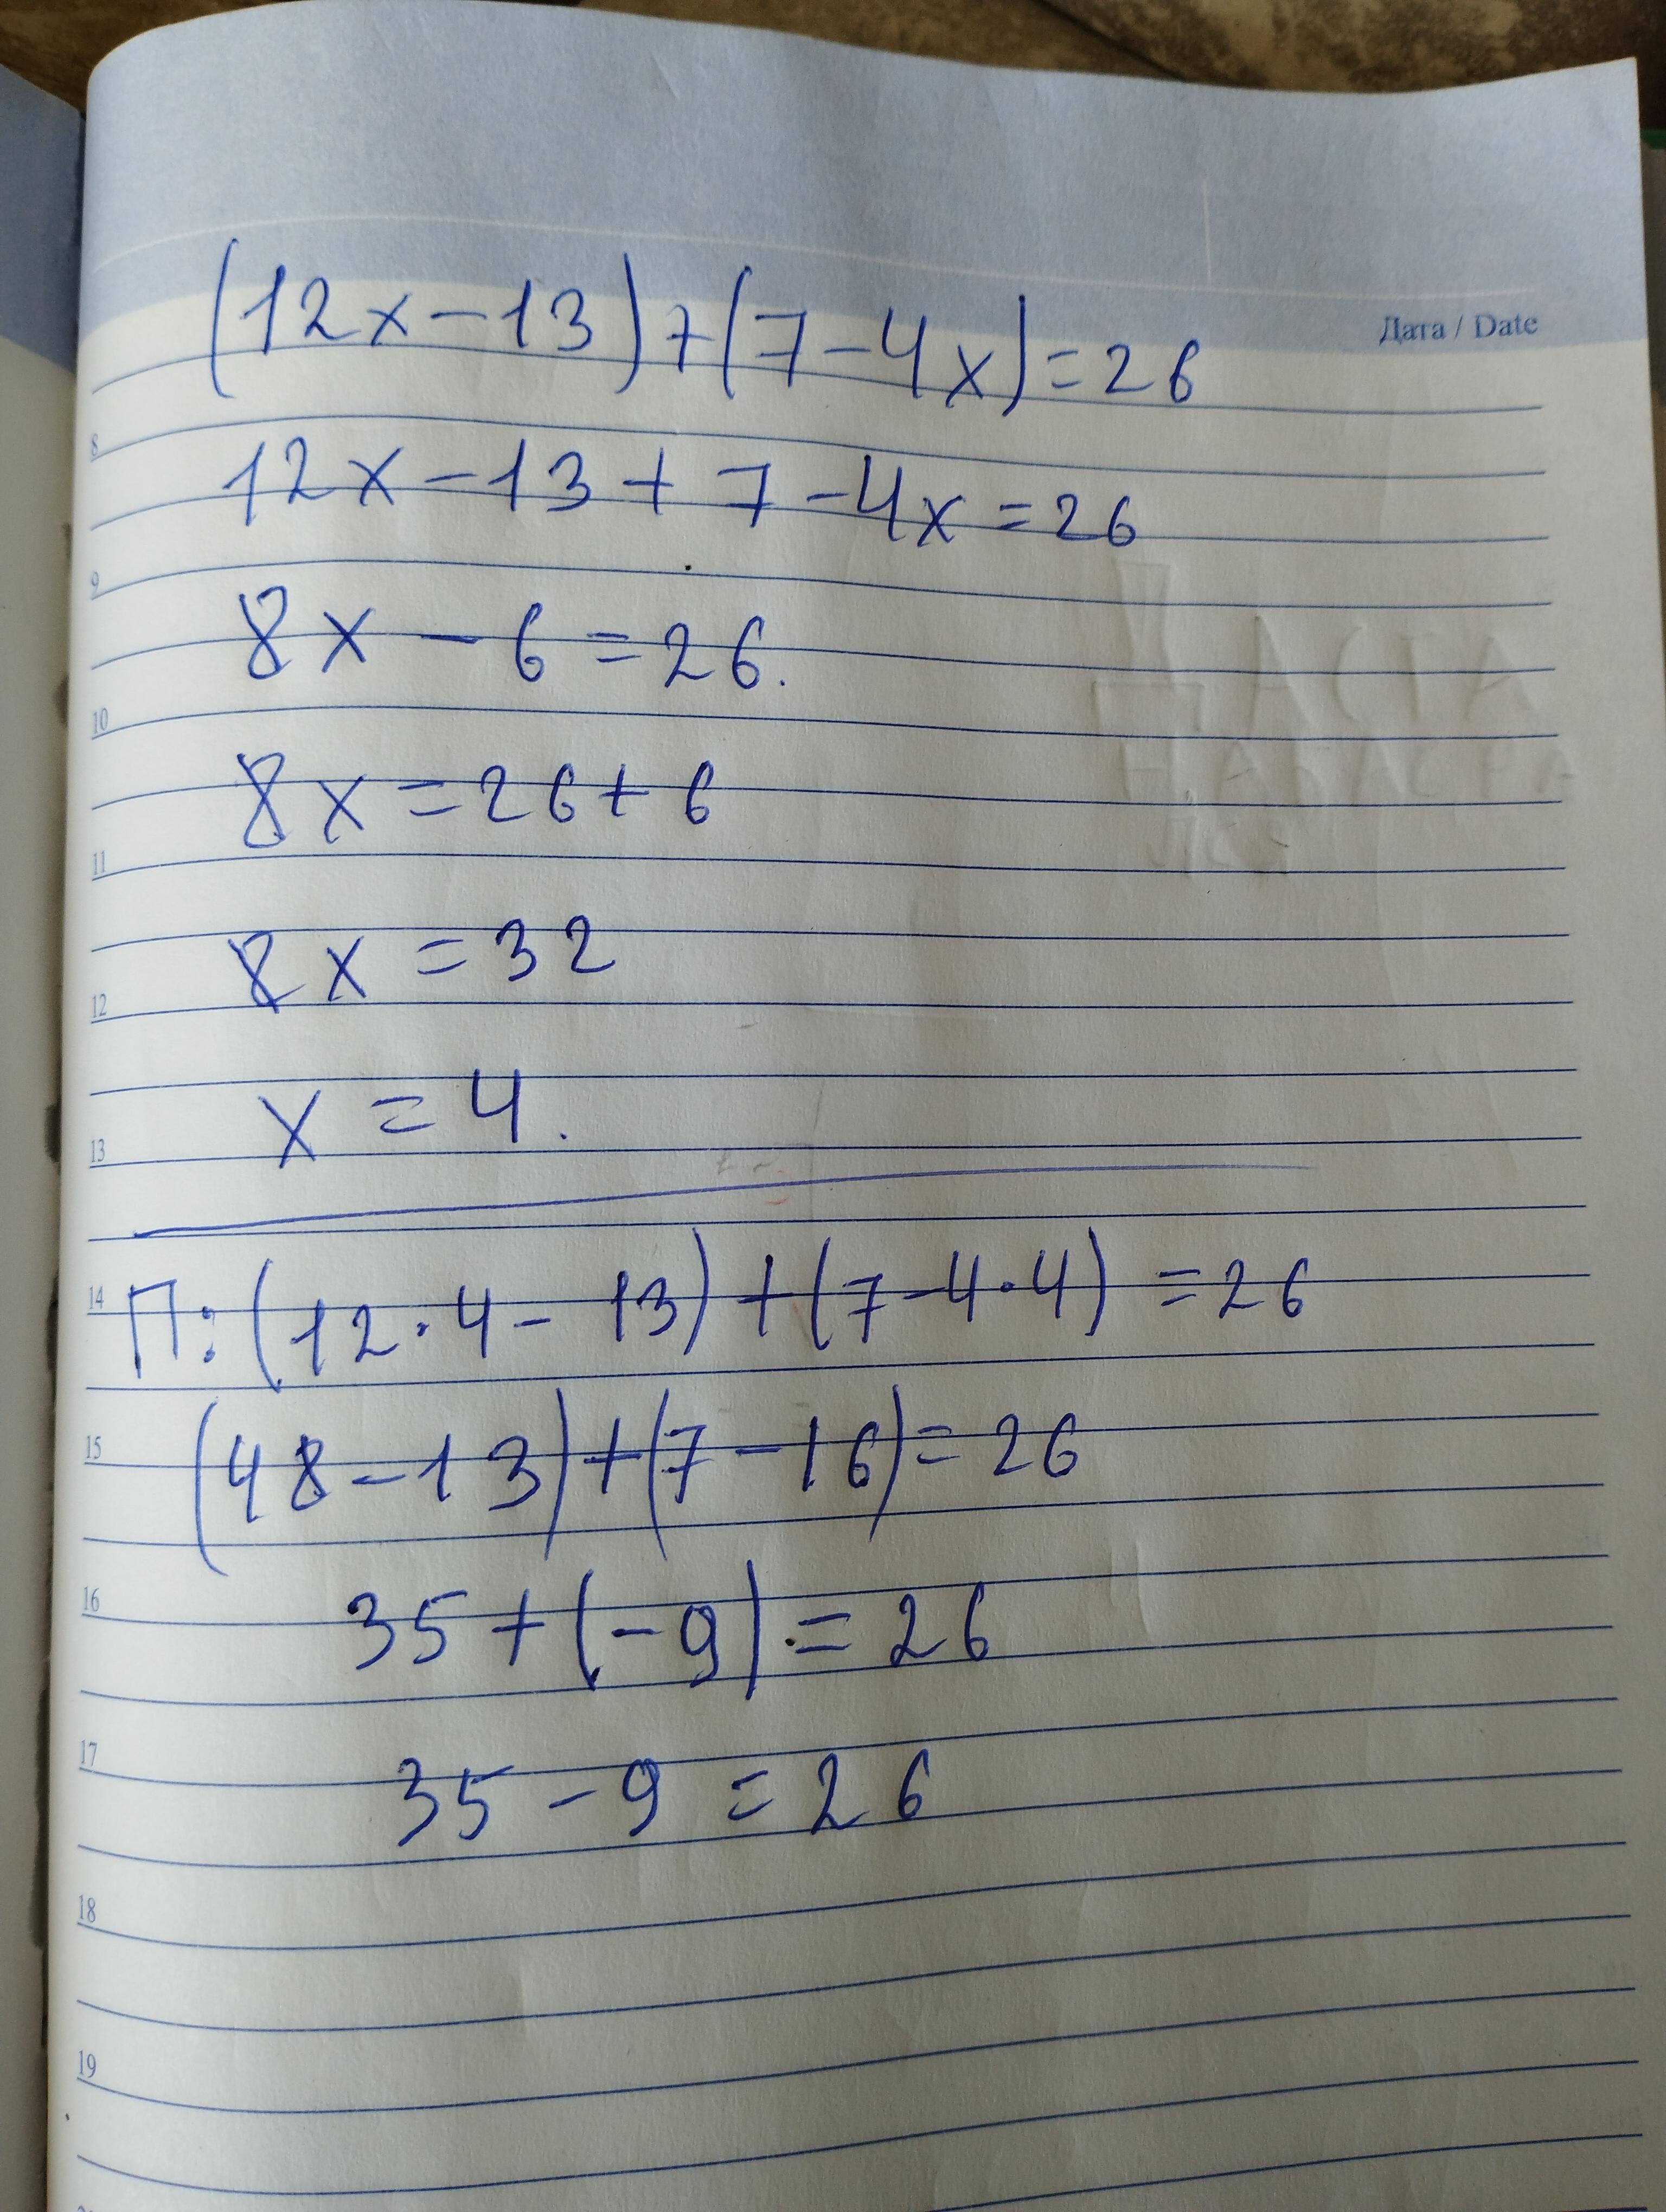 Дата / Date
(12x-13)+(7-4x)=26
8
12x-13+7-4x=26
9
8x-6=26.
10
8x=26+6
11
8x=32
12
x=4.
13
14
П: (12·4-13)+(7-4·4)=26
15
(48-13)+(7-16)=26
16
35+(-9)=26
17
35-9=26
18
19